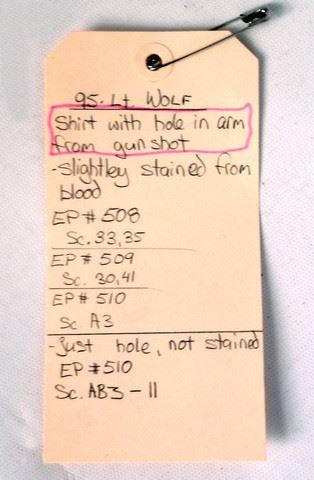 95. Lt. WOLF
Shirt with hole in arm
from gunshot
-slightley stained from
blood
EP # 508
Sc. 33,35
EP # 509
Sc. 30,41
EP # 510
Sc A3
-Just hole, not stained
EP #510
Sc. AB3 - 11